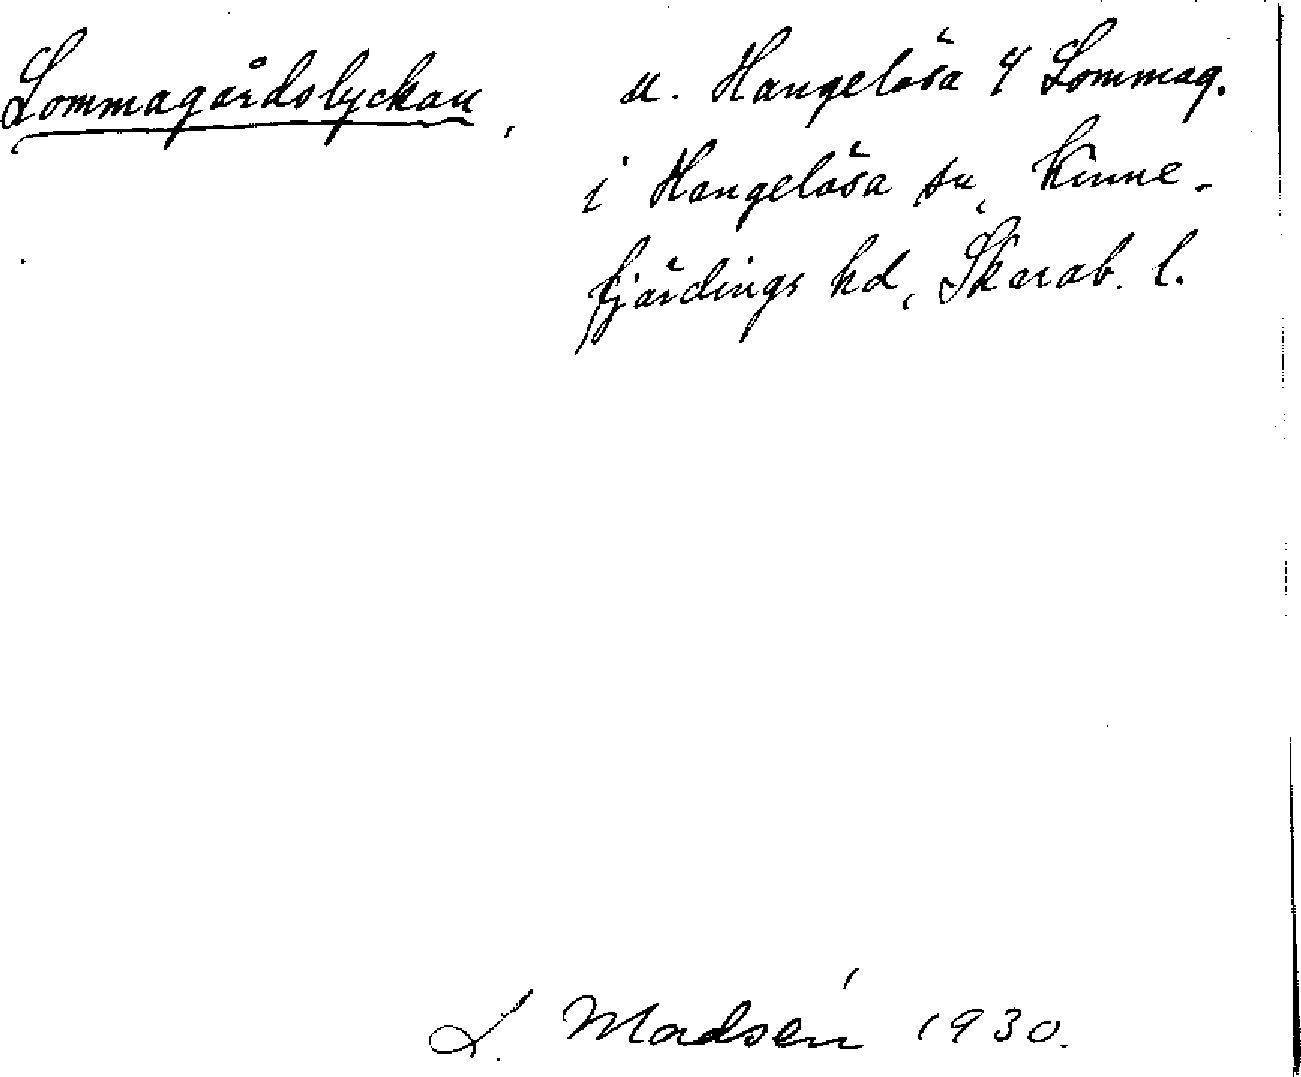 Lommagårdslyckan, u. Hangelösa 4 Lommag.
i Hangelösa sn, Kinne-
fjärdings hd, Skarab. l.
L. Madsén 1930.